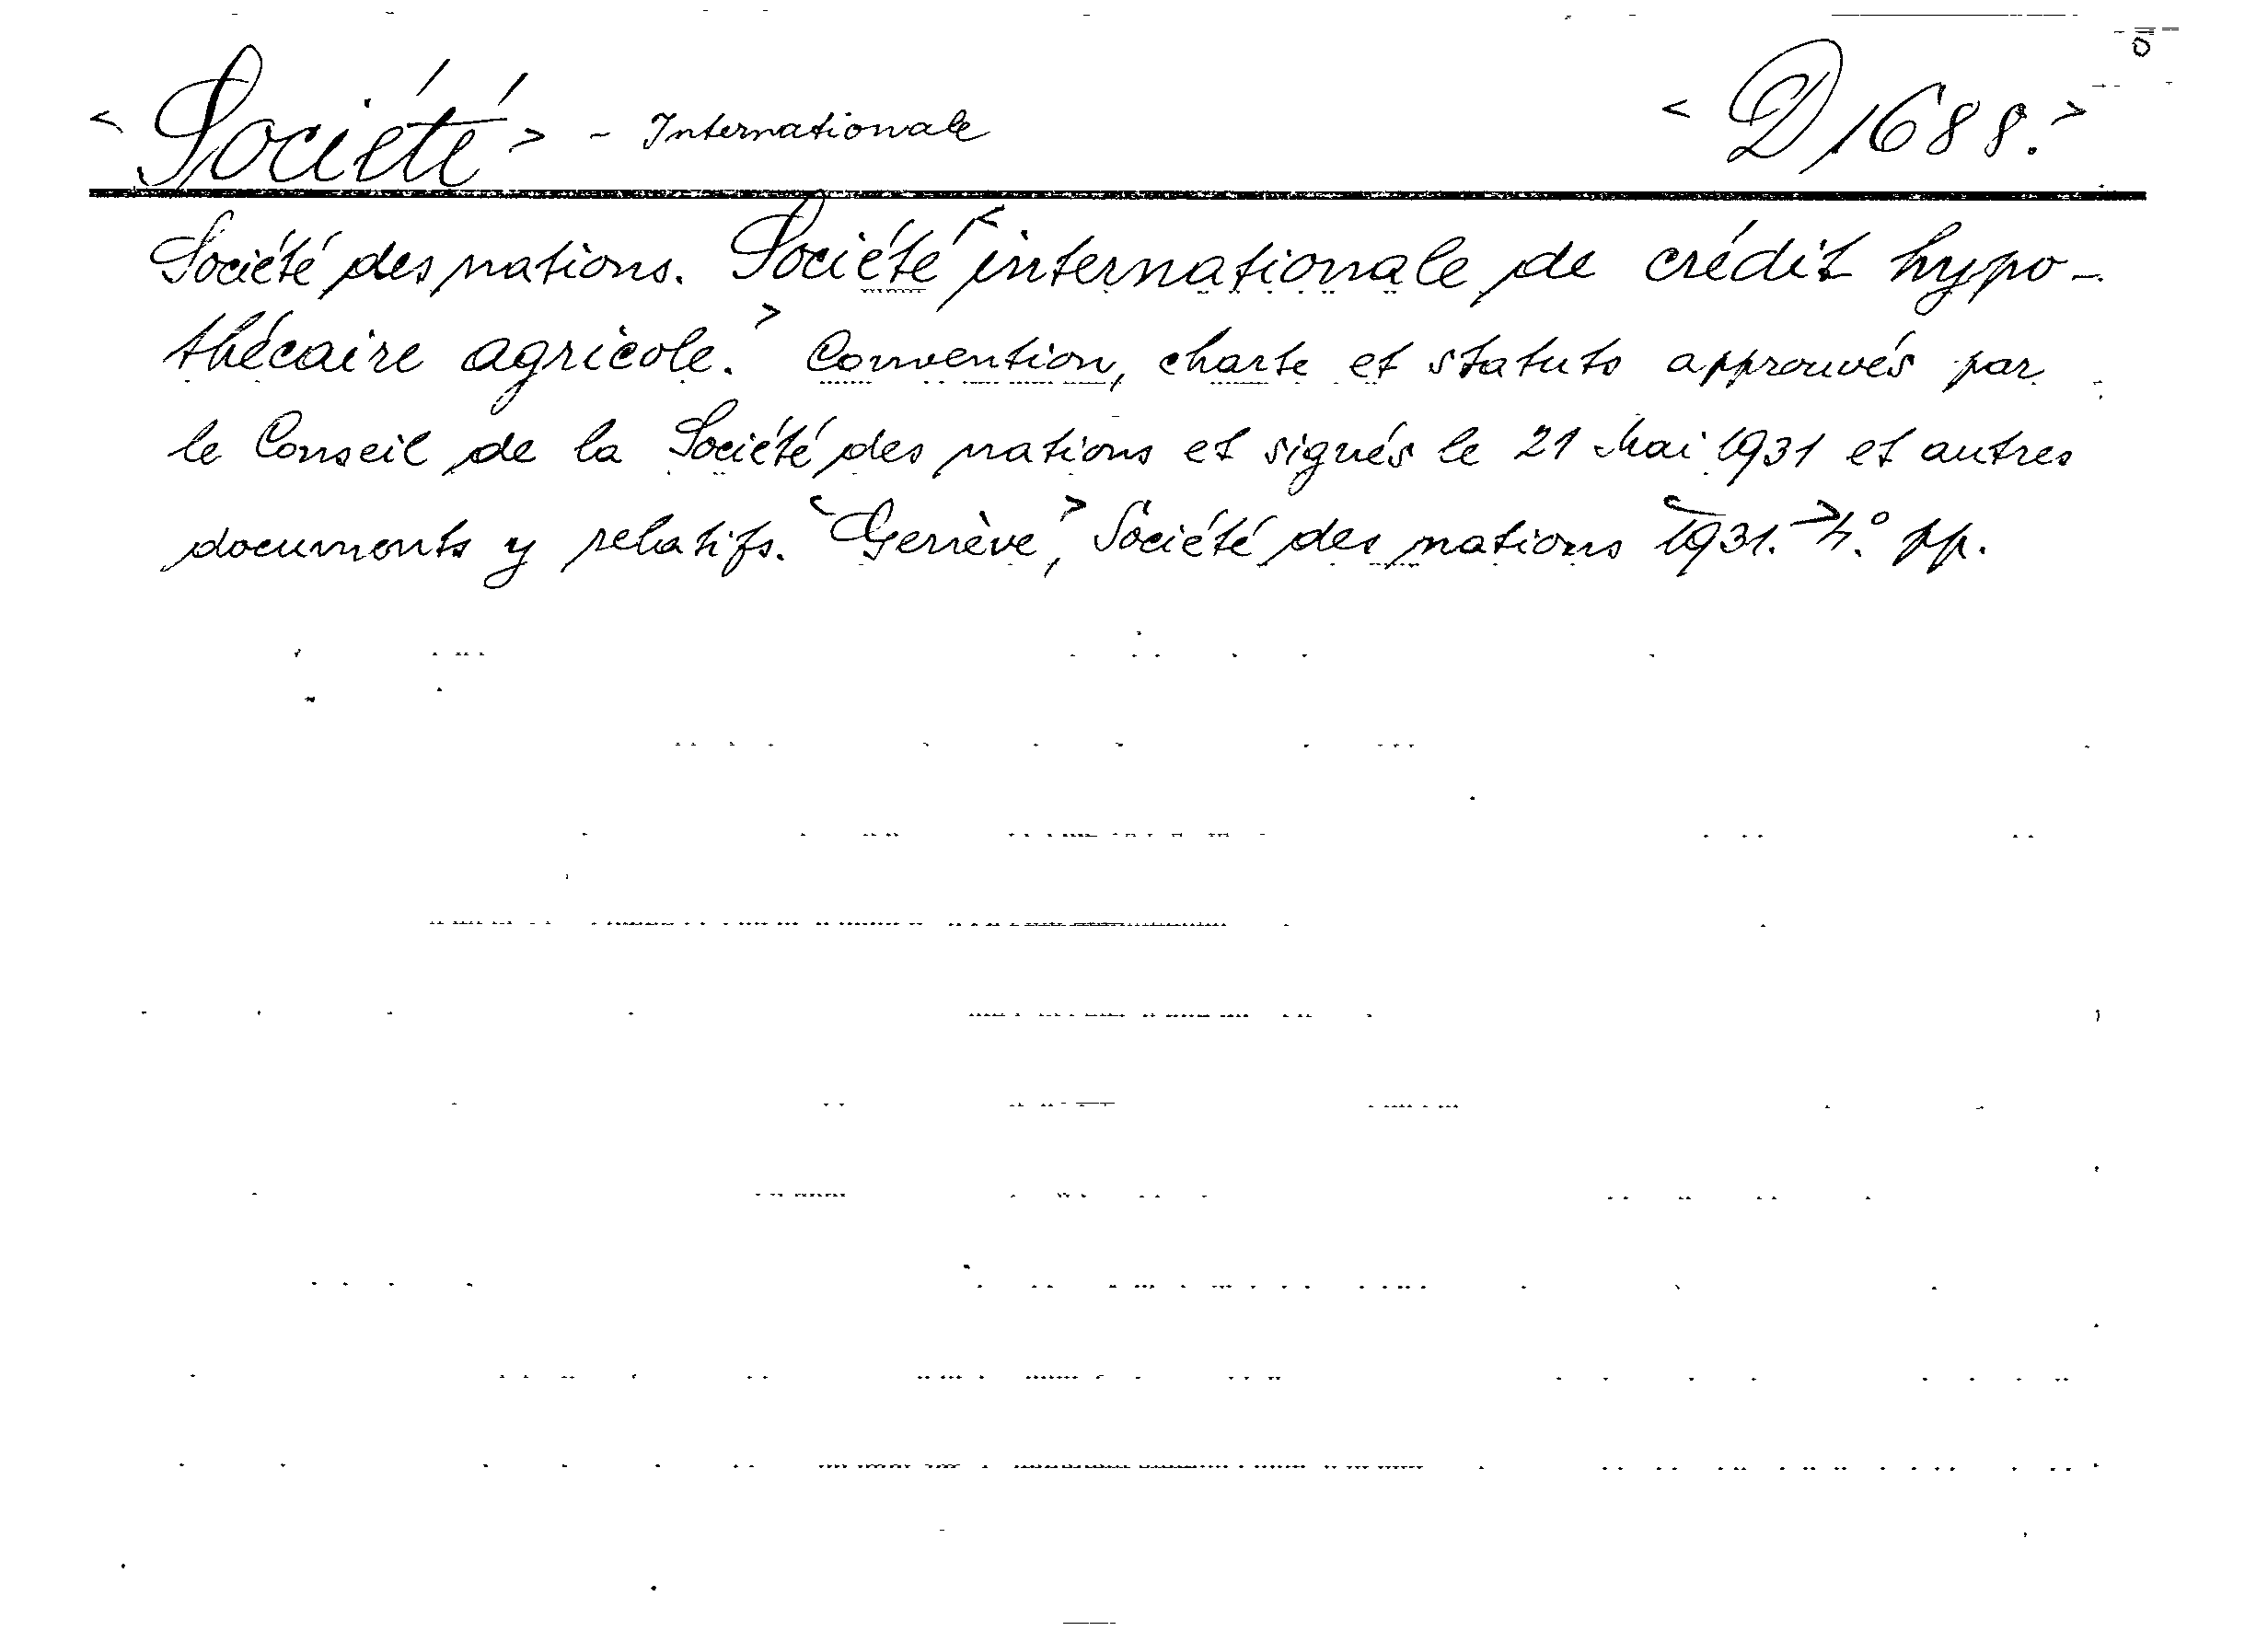 < Société > - Internationale < D 1688. >
Société des nations. Société < internationale de crédit hypo-
thécaire agricole. > Convention, charte et statuts approuvés par
le Conseil de la Société des nations et signés le 21 Mai 1931 et autres
documents y relatifs. < Genève, > Société des nations < 1931. > 4.° pp.